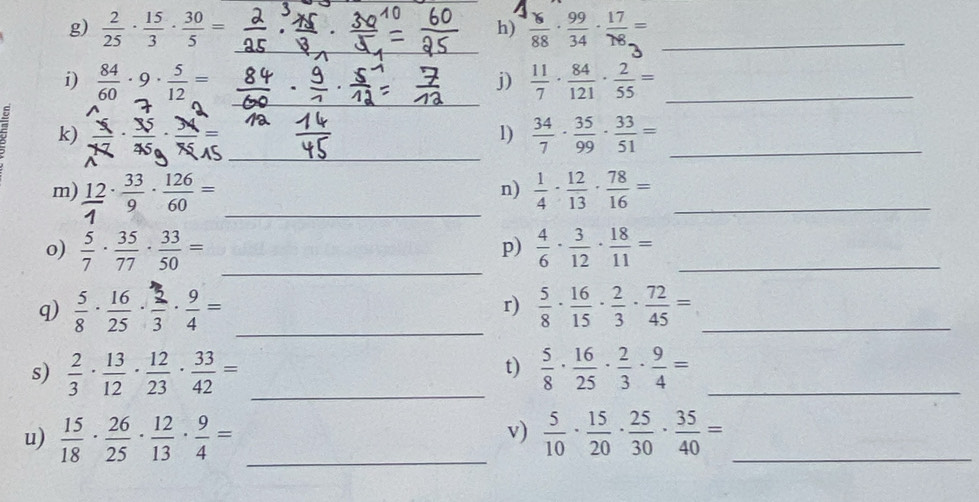 g) 2/25 · 15/3 · 30/5 = 2/25 · 15/3 · 30/5 = 60/25 3 1 10 1
h) 6/88 · 99/34 · 17/18 = 1 3
i) 84/60 · 9 · 5/12 = 84/60 · 9/1 · 5/12 = 7/12 12 1
j) 11/7 · 84/121 · 2/55 =
k) 5/17 · 35/45 · 34/75 = 14/45 1 1 7 9 2 15
l) 34/7 · 35/99 · 33/51 =
m) 12/1 · 33/9 · 126/60 =
n) 1/4 · 12/13 · 78/16 =
o) 5/7 · 35/77 · 33/50 =
p) 4/6 · 3/12 · 18/11 =
q) 5/8 · 16/25 · 2/3 · 9/4 =
r) 5/8 · 16/15 · 2/3 · 72/45 =
s) 2/3 · 13/12 · 12/23 · 33/42 =
t) 5/8 · 16/25 · 2/3 · 9/4 =
u) 15/18 · 26/25 · 12/13 · 9/4 =
v) 5/10 · 15/20 · 25/30 · 35/40 =